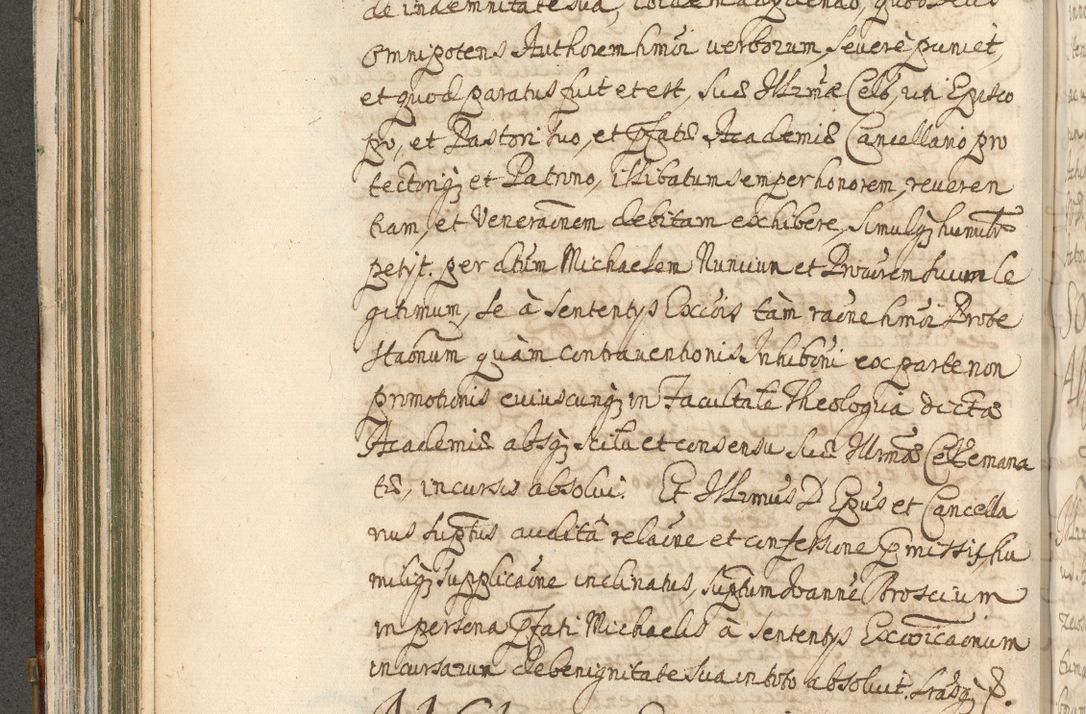 de indemnitate sua,
omnipotens Authorem hmõi verborum, severè puniet,
et quod paratus fuit et est, suæ Illrmæ Celsⁿⁱ, uti Episco
po, et Pastori suo, et pfatæ Academiæ Cancellario pro
tectoriqȝ et Patrono, illibatum semper honorem, reveren
tiam, et Veneraõnem debitam exhibere, simulqȝ humilr
petijt. per dtum Michaelem Nuncium et Procurem suum le
gitimum, se à sententys Excõis tàm raõne hmõi Prote
staõnum quàm contraventionis Inhibõni ex parte non
promotionis cuiuscunqȝ in Facultate Theologica dictæ
Academiæ absqȝ scitu et consensu suæ Illrmæ Cels emana
tæ, incursis absolvi. Et Illrmus D Epus et Cancella
rius suptus auditâ relaõne et confessione pmissis, hu
miliqȝ supplicaõne inclinatus, suptum Joannẽ Broscium
in persona pfati Michaelis à sententys Excõicaõnum
incursarum de benignitate sua in toto absolvit. Lrasqȝ